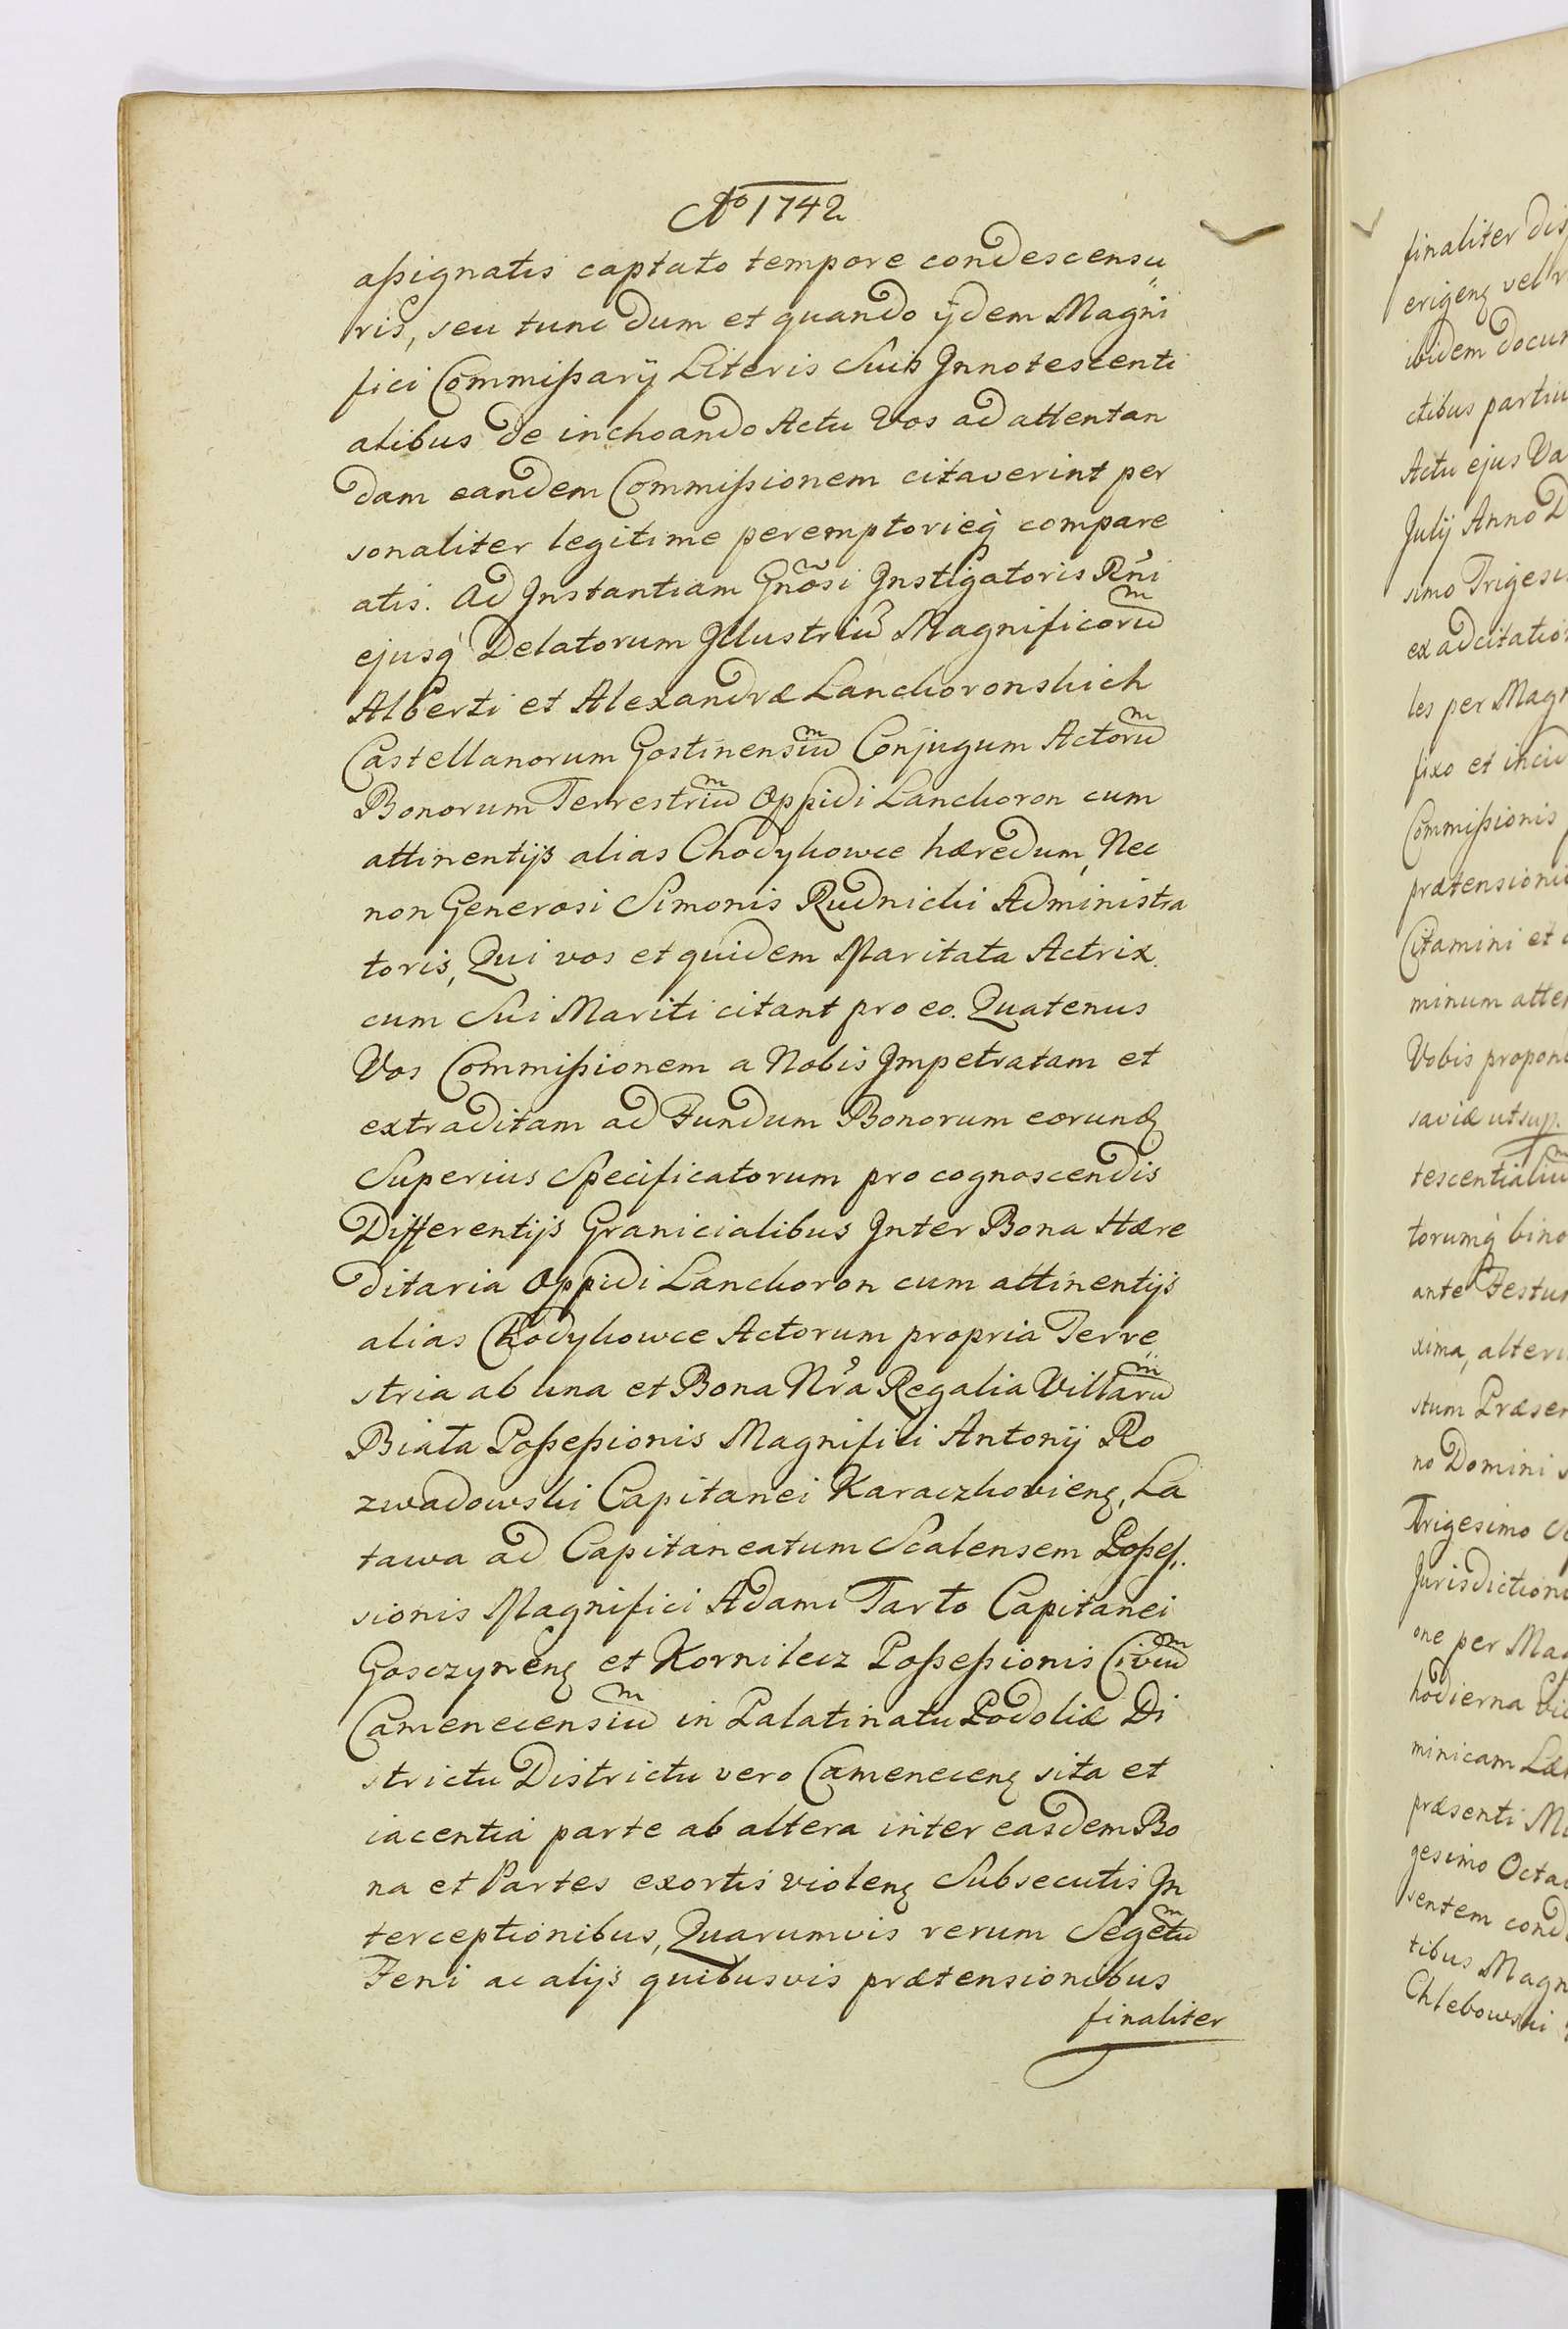 Aō 1742
assignatis captato tempore condescensu
ris, seu tunc dum et quando ijdem Magni
fici Commissarij Literis Suis Innotescenti
alibus de inchoando Actu Vos ad attentan
dam eandem Commissionem citaverint per
sonaliter legitime peremptorieq̀ compare
atis. Ad Instantiam Gnõsi Instigatoris Rñi
ejusq̀ Delatorum Illustriũ Magnificorũ
Alberti et Alexandræ Lanckoronskich
Castellanorum Gostinensiũ Conjugum Actorũ
Bonorum Terrestriũ Oppidi Lanckoron cum
attinentijs alias Chodykowce hæredum, Nec
non Generosi Simonis Rudnicki Administra
toris, Qui vos et quidem Maritata Actrix
cum Sui Mariti citant pro eo. Quatenus
Vos Commissionem a Nobis Impetratam et
extraditam ad Fundum Bonorum eorunḑ
Superius Specificatorum pro cognoscendis
Differentijs Granicialibus Inter Bona Hære
ditaria Oppidi Lanckoron cum attinentijs
alias Chodykowce Actorum propria Terre
stria ab una et Bona Nr̃a Regalia Villarũ
Biała Possessionis Magnifici Antonij Ro
zwadowski Capitanei Karaczkovienȩ, La
tawa ad Capitaneatum Scalensem Posses.
sionis Magnifici Adami Tarło Capitanei
Gosczynenȩ et Kornilecz Possessionis Civiũ
Camenecensiũ in Palatinatu Podoliæ Di
strictu Districtu vero Camenecenȩ sita et
iacentia parte ab altera inter easdem Bo
na et Partes exortis violenȩ Subsecutis In
terceptionibus, Quarumvis rerum Segetũ
Feni ac alijs quibusvis prætensionibus
finaliter
finaliter dis
erigenȩ vel
ibidem docu
ctibus partiu
Actu ejus Va
Julij Anno D
simo Trigesi
ex adcitatio
les per Magn
fixo et incid
Commissionis
prætensioni
Citamini et
minum atte
Vobis propon
saviæ ut sup.
tescentialiũ
torumq̀ bino
ante Festu
xima, alter
stum Præsen
no Domini
Trigesimo
Jurisdiction
one per Ma
hodierna vi
minicam Læ
præsenti M
gesimo Octa
sentem cond
tibus Magn
Chlebowski